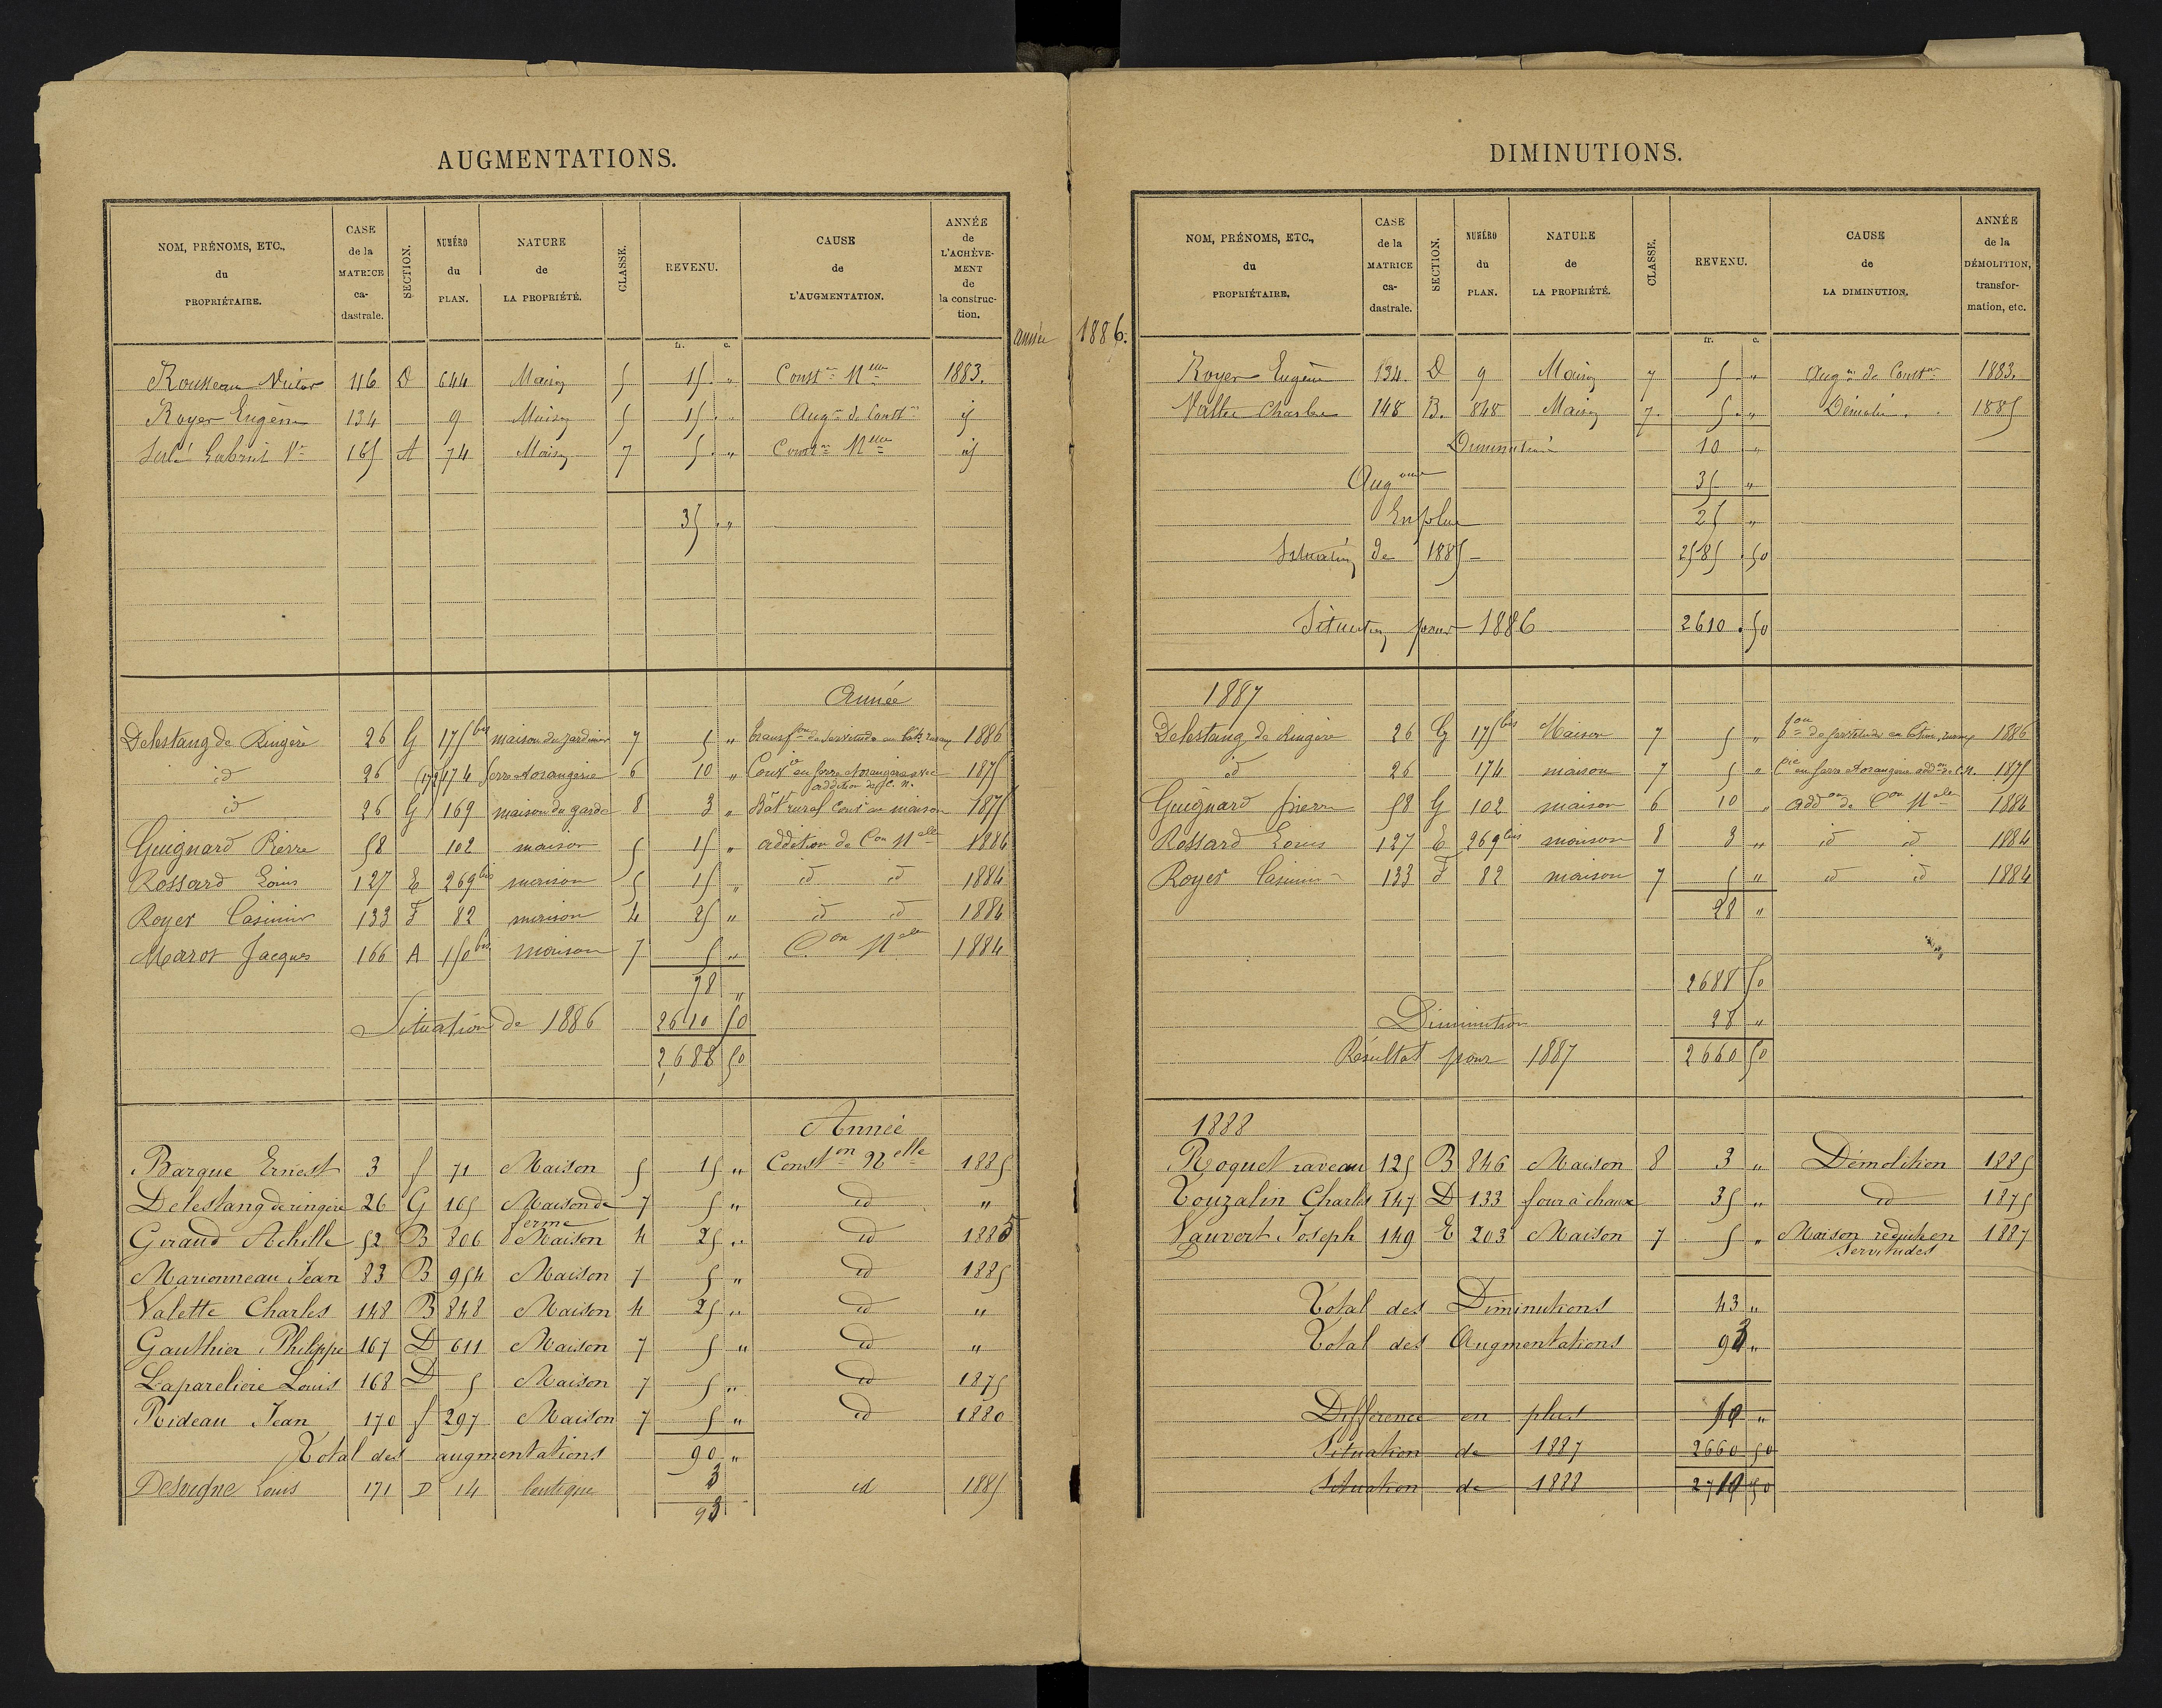 AUGMENTATIONS.
NOM, PRÉNOMS, ETC., du PROPRIÉTAIRE. CASE de la MATRICE ca-dastrale. SECTION. NUMÉRO du PLAN. NATURE de LA PROPRIÉTÉ. CLASSE. REVENU. CAUSE de L'AUGMENTATION. ANNÉE de L'ACHÈVE-MENT de la construc-tion.
fr. c.
Rousseau Victor 116 D 644 Maison 5 15 " Conston Nelle 1883.
Royer Eugène 134 9 Maison 5 15 " Augon de Conston id
Gabriel Ve 165 A 74 Maison 7 5 " Conston Nelle id
35 "
Année
Delestang de Ringère 26 G 175 bis maison du jardinier 7 5 " transfon de servitude en bât. rural 1886
id 26 174 Serre et orangerie 6 10 " Convie en serre et orangerie avec addition de C. N. 1875
id 26 G 169 maison du garde 8 3 " Bât rural Convt en maison 1875
Guignard Pierre 58 102 maison 5 15 " addition de Con Nelle 1886
Rossard Louis 127 E 269 bis maison 5 15 " id id 1884
Royer Casimir 133 F 82 maison 4 25 " id id 1884
Marot Jacques 166 A 150 bis maison 7 5 " Con Nelle 1884
78 "
Situation de 1886 2610 50
2,688 50
Année
Barque Ernest 3 f 71 Maison 5 15 " Conston Nelle 1885
Delestang de ringère 26 G 165 Maison de ferme 7 5 " id "
Giraud Achille 52 B 806 Maison 4 25 " id 1885
Marionneau Jean 83 B 954 Maison 7 5 " id 1885
Valette Charles 148 B 848 Maison 4 25 " id "
Gauthier Philippe 167 D 611 Maison 7 5 " id "
Laparelière Louis 168 D 5 Maison 7 5 " id 1875
Rideau Jean 170 f 297 Maison 7 5 " id 1880
Total des augmentations 90 "
Desvigne Louis 171 D 14 boutique 3 id 1885
93
année 1886.
DIMINUTIONS.
NOM, PRÉNOMS, ETC., du PROPRIÉTAIRE. CASE de la MATRICE ca-dastrale. SECTION. NUMÉRO du PLAN. NATURE de LA PROPRIÉTÉ. CLASSE. REVENU. CAUSE de LA DIMINUTION. ANNÉE de la DÉMOLITION, transfor-mation, etc.
fr. c.
Royer Eugène 134. D 9 Maison 7 5 " Augon de Conston 1883.
Charles 148 B. 848 Maison 7. 5 " Démolie. 1885
Diminution 10 "
Augon 35 "
En plus 25 "
Situation de 1885 2585 50
Situation pour 1886 2610.50
1887
Delestang de Ringère 26 G 175 bis Maison 7 5 " de servitude en bâtim. rural 1886
id 26 174 maison 7 5 " en serre et orangerie addon de C. N. 1875
Guignard pierre 58 G 102 maison 6 10 " addon de Con Nelle 1886
Rossard Louis 127 E 269 bis maison 8 3 " id id 1884
Royer Casimir 133 F 82 maison 7 5 " id id 1884
28 "
2688 50
Diminution 28 "
Résultat pour 1887 2660 50
1888
Roquet raveau 125 B 846 Maison 8 3 " Démolition 1885
Touzalin Charles 147 D 133 four à chaux 35 " id 1875
Vauvert Joseph 149 E 203 Maison 7 5 " Maison réduit en servitudes 1887
Total des Diminutions 43 "
Total des Augmentations 93 "
Différence en plus 50 "
Situation de 1887 2660 50
Situation de 1888 2710 50